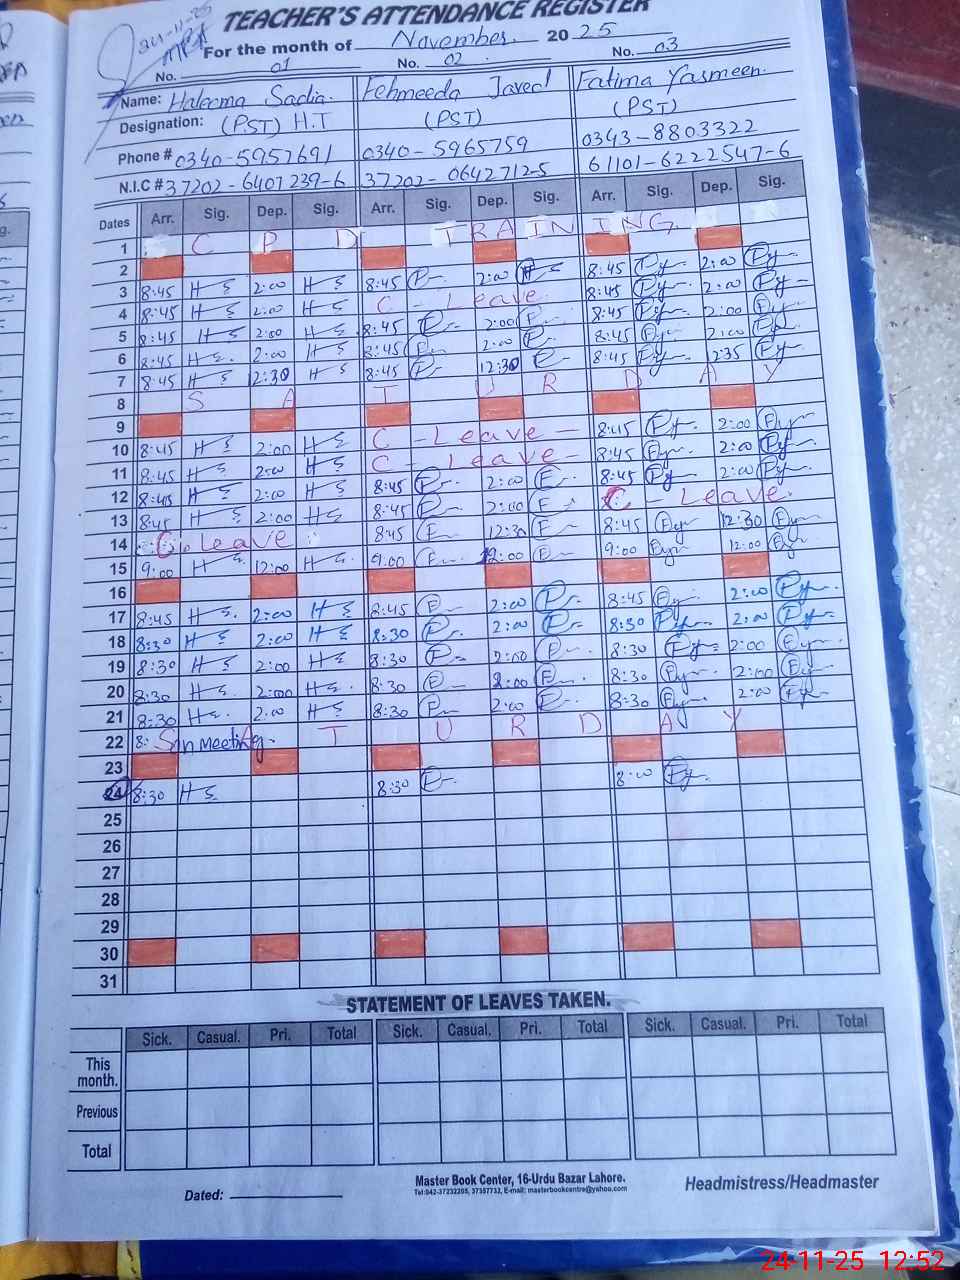 24-11-25
TEACHER'S ATTENDANCE REGISTER
For the month of November. 2025
No. 01 No. 02 No. 03
Name: Haleema Sadia Fehmeeda Javed Fatima Yasmeen.
Designation: (PST) H.T (PST) (PST)
Phone # 0340-5957691 0340-5965759 0343-8803322
N.I.C # 37202-6407239-6 37202-0642712-5 61101-6222547-6
Dates Arr. Sig. Dep. Sig. Arr. Sig. Dep. Sig. Arr. Sig. Dep. Sig.
1 C P D TRAINING
2
3 8:45 HS 2:00 HS 8:45 2:00 8:45 2:00
4 8:45 HS 2:00 HS C - Leave 8:45 2:00
5 8:45 HS 2:00 HS 8:45 2:00 8:45 2:00
6 8:45 HS 2:00 HS 8:45 2:00 8:45 2:00
7 8:45 HS 12:30 HS 8:45 12:30 8:45 12:35
8 S A T U R D A Y
9
10 8:45 HS 2:00 HS C - Leave - 8:45 2:00
11 8:45 HS 2:00 HS C - Leave - 8:45 2:00
12 8:45 HS 2:00 HS 8:45 2:00 8:45 2:00
13 8:45 HS 2:00 HS 8:45 2:00 C - Leave.
14 C. Leave 8:45 12:30 8:45 12:30
15 9:00 HS 12:00 HS 9:00 12:00 9:00 12:00
16
17 8:45 HS 2:00 HS 8:45 2:00 8:45 2:00
18 8:30 HS 2:00 HS 8:30 2:00 8:30 2:00
19 8:30 HS 2:00 HS 8:30 2:00 8:30 2:00
20 8:30 HS 2:00 HS 8:30 2:00 8:30 2:00
21 8:30 HS 2:00 HS 8:30 2:00 8:30 2:00
22 8: S in meeting A T U R D A Y
23
24 8:30 HS 8:30 8:00
25
26
27
28
29
30
31
STATEMENT OF LEAVES TAKEN.
Sick. Casual. Pri. Total Sick. Casual. Pri. Total Sick. Casual. Pri. Total
This month.
Previous
Total
Dated: Master Book Center, 16-Urdu Bazar Lahore. Headmistress/Headmaster
Tel:042-37232205, 37357732, E-mail: masterbookcentre@yahoo.com
24-11-25 12:52